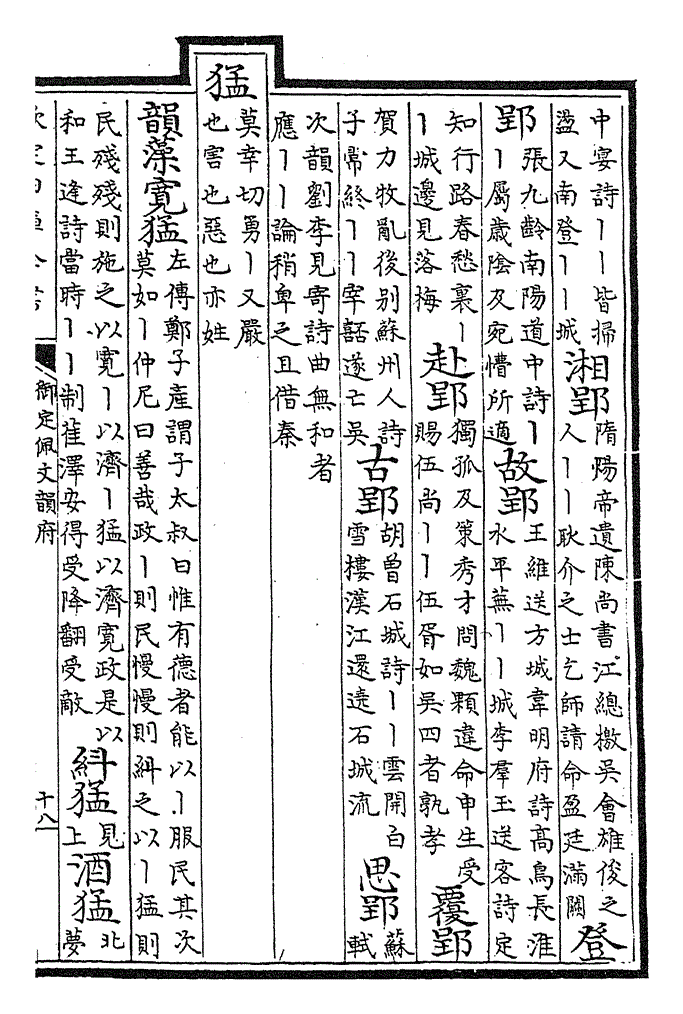 中宴詩丨丨皆掃
盪又南登丨丨城
湘郢
隋煬帝遺陳尚書江總檄吳會雄俊之
人丨丨耿介之士乞師請命盈廷滿闕
登
郢
張九齡南陽道中詩丨
丨屬歲陰及宛懵所適
故郢
王維送方城韋明府詩高鳥長淮
水平蕪丨丨城李羣玉送客詩定
知行路春愁裏丨
丨城邊見落梅
赴郢
獨孤及策秀才問魏顆違命申生受
賜伍尚丨丨伍胥如吳四者孰孝
覆郢
賀力牧亂後别蘇州人詩
子常終丨丨宰嚭遂亡吳
古郢
胡曾石城詩丨丨雲開白
雪樓漢江還遶石城流
思郢
蘇
軾
次韻劉李見寄詩曲無和者
應丨丨論稍卑之且借秦
猛
莫幸切勇丨又嚴
也害也惡也亦姓
韻藻
寬猛
左傳鄭子產謂子太叔曰惟有德者能以丨服民其次
莫如丨仲尼曰善哉政丨則民慢慢則糾之以丨猛則
民殘殘則施之以寛丨以濟丨猛以濟寛政是以
和王逢詩當時丨丨制萑澤安得受降翻受敵
糾猛
見
上
酒猛
北
夢
御定佩文韻府
十八